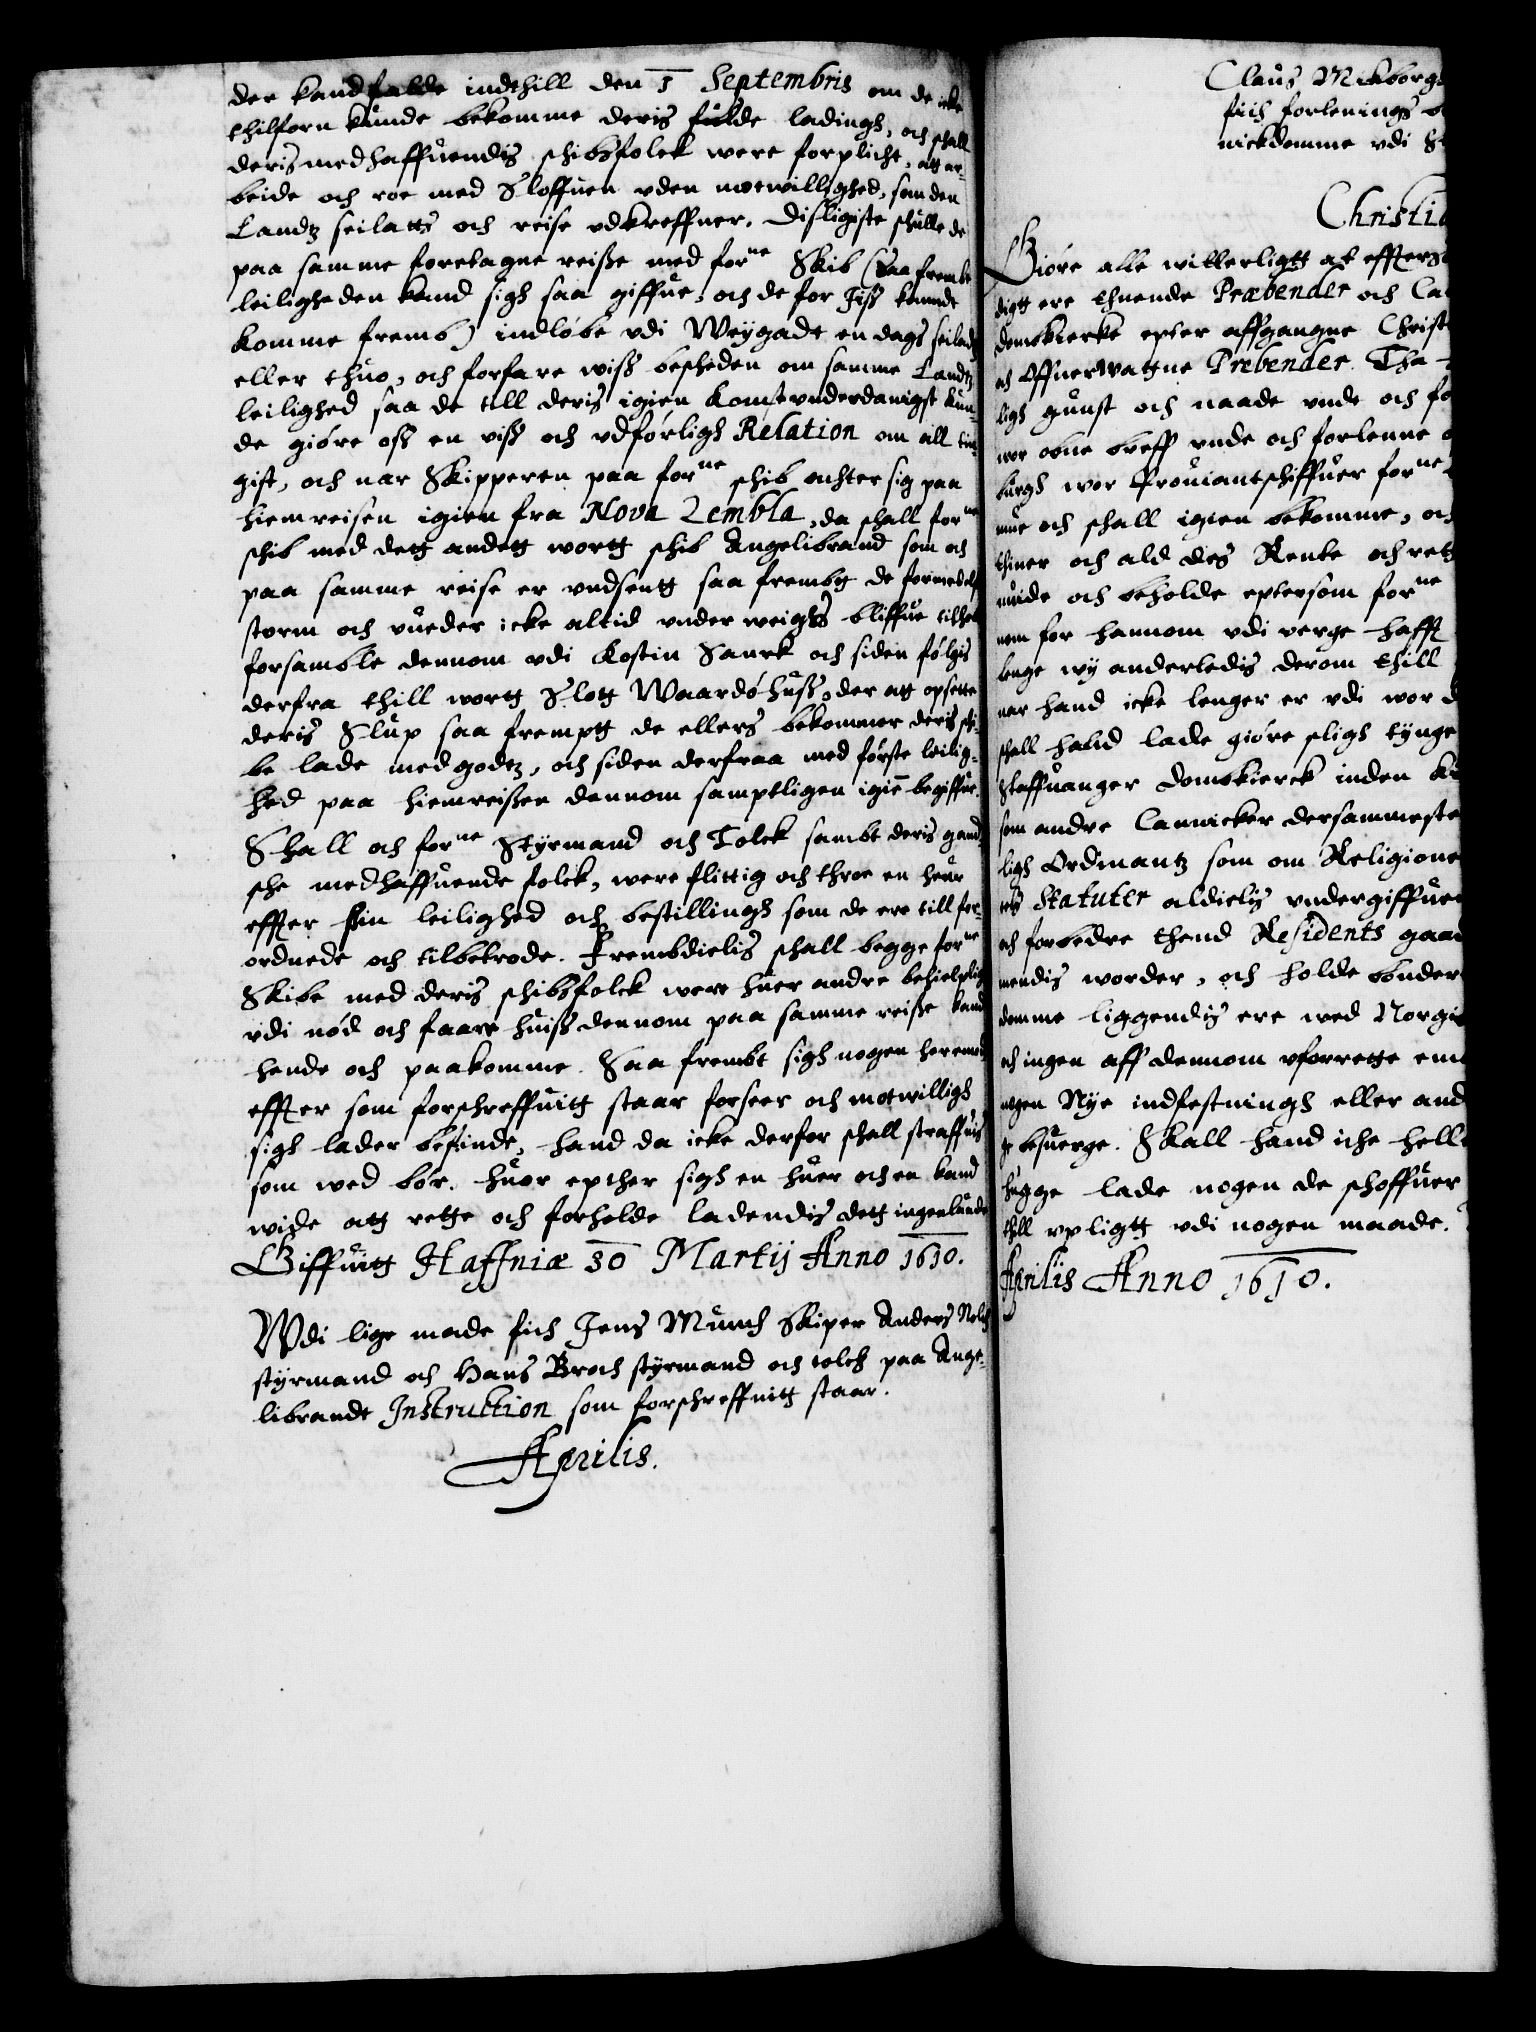 der kand falde indthill den 1 Septembris om de icke
thilforn kunde bekomme deris fulde ladingh, och schall
deris medhaffuendis schibsfolck were forplicht, att ar-
beide och roe med Sloffuen uden motwillighed, som den
Landtz seilatts och reise udkreffuer. Disligiste schulle de
paa samme foretagne reisse med forne Skib (saa frembt
leiligheden kand sigh saa giffue, och de for Jiss kunde
komme fremb) indløbe udi Weygadt en dags seilads
eller thuo, och forfare wiss bescheden om samme Landtz
leilighed saa de till deris igien komst underdanigst kun-
de giøre oss en viss och udførligh Relation om all tin-
gist, och nar Skipperen paa forne schib achter sig paa
hiemreisen igien fra Nova Zembla, da schall forne
schib med dett andett wortt schib Angelibrand som och
paa samme reise er undsentt saa frembt de formedelst
storm och uueder icke altid under weighs bliffue tilhobe
forsamble dennom udi Kostin Sarck och siden følgis
derfra thill wortt Slott Waardøhuss, der att opsette
deris Slup saa fremptt de ellers bekommer deris schi-
be lade med godtz, och siden derfraa med første leilig-
hed paa hiemreissen dennom samptligen igien begiffue.
Shall och forne Styrmand och Tolck sambt deris gand-
sche medhaffuende folck, were flittig och throe en huer
effter sin leilighed och bestillingh som de ere till for-
ordnede och tilbetrode. Frembdielis schall begge forne
Skibe med deris schibsfolck were huer andre behielplig
udi nød och faare huiss dennom paa samme reisse kand
hende och paakomme. Saa frembt sigh nogen heremod
effter som forschreffuitt staar forseer och motwilligh
sigh lader befinde, hand da icke derfor schall straffuis
som wed bør. huor epther sigh en huer och en kand
wide att rette och forholde ladendis dett ingenlunde
Giffuitt Haffniæ 30 Martij Anno 1610.
Wdi lige made fich Jens Munch Skiper Anders
styrmand och Hans Broch styrmand och tolch paa Ange-
librandt Instruction som forschreffuitt staar.
Aprilis.
Claus
fich forlenings
nickdomme udi
Christia
Giøre alle witterligtt at effters
digtt ere thuende Præbender och Ca
domkierke epter affgangne Christ
och Offuerwattne Prebender. Tha
ligh gunst och naade unde och fo
wor obne breff unde och forlenne
burgh wor Prouiantschriffuer forne
nue och schall igien bekomme, och
thiner och ald des Rente och rett
niude och beholde eptersom forne
nem for hannom udi verge hafft
lenge wy anderledis derom thill
nar hand icke lenger er udi wor
schall hand lade giøre sligh tynge
Staffuanger Domkierck inden
som andre Cannicker dersammeste
ligh Ordinantz som om Religione
tis Statuter aldielis undergiffuen
och forbedre thend Residents gaar
nendis worder, och holde bønder
domme liggendis ere wed Norgis
och ingen aff dennom uforrette
nogen Nye indfestningh eller and
ge besuerge. Skall hand iche hell
hugge lade nogen de schoffuer
thill upligtt udi nogen maade.
Aprilis Anno 1610.